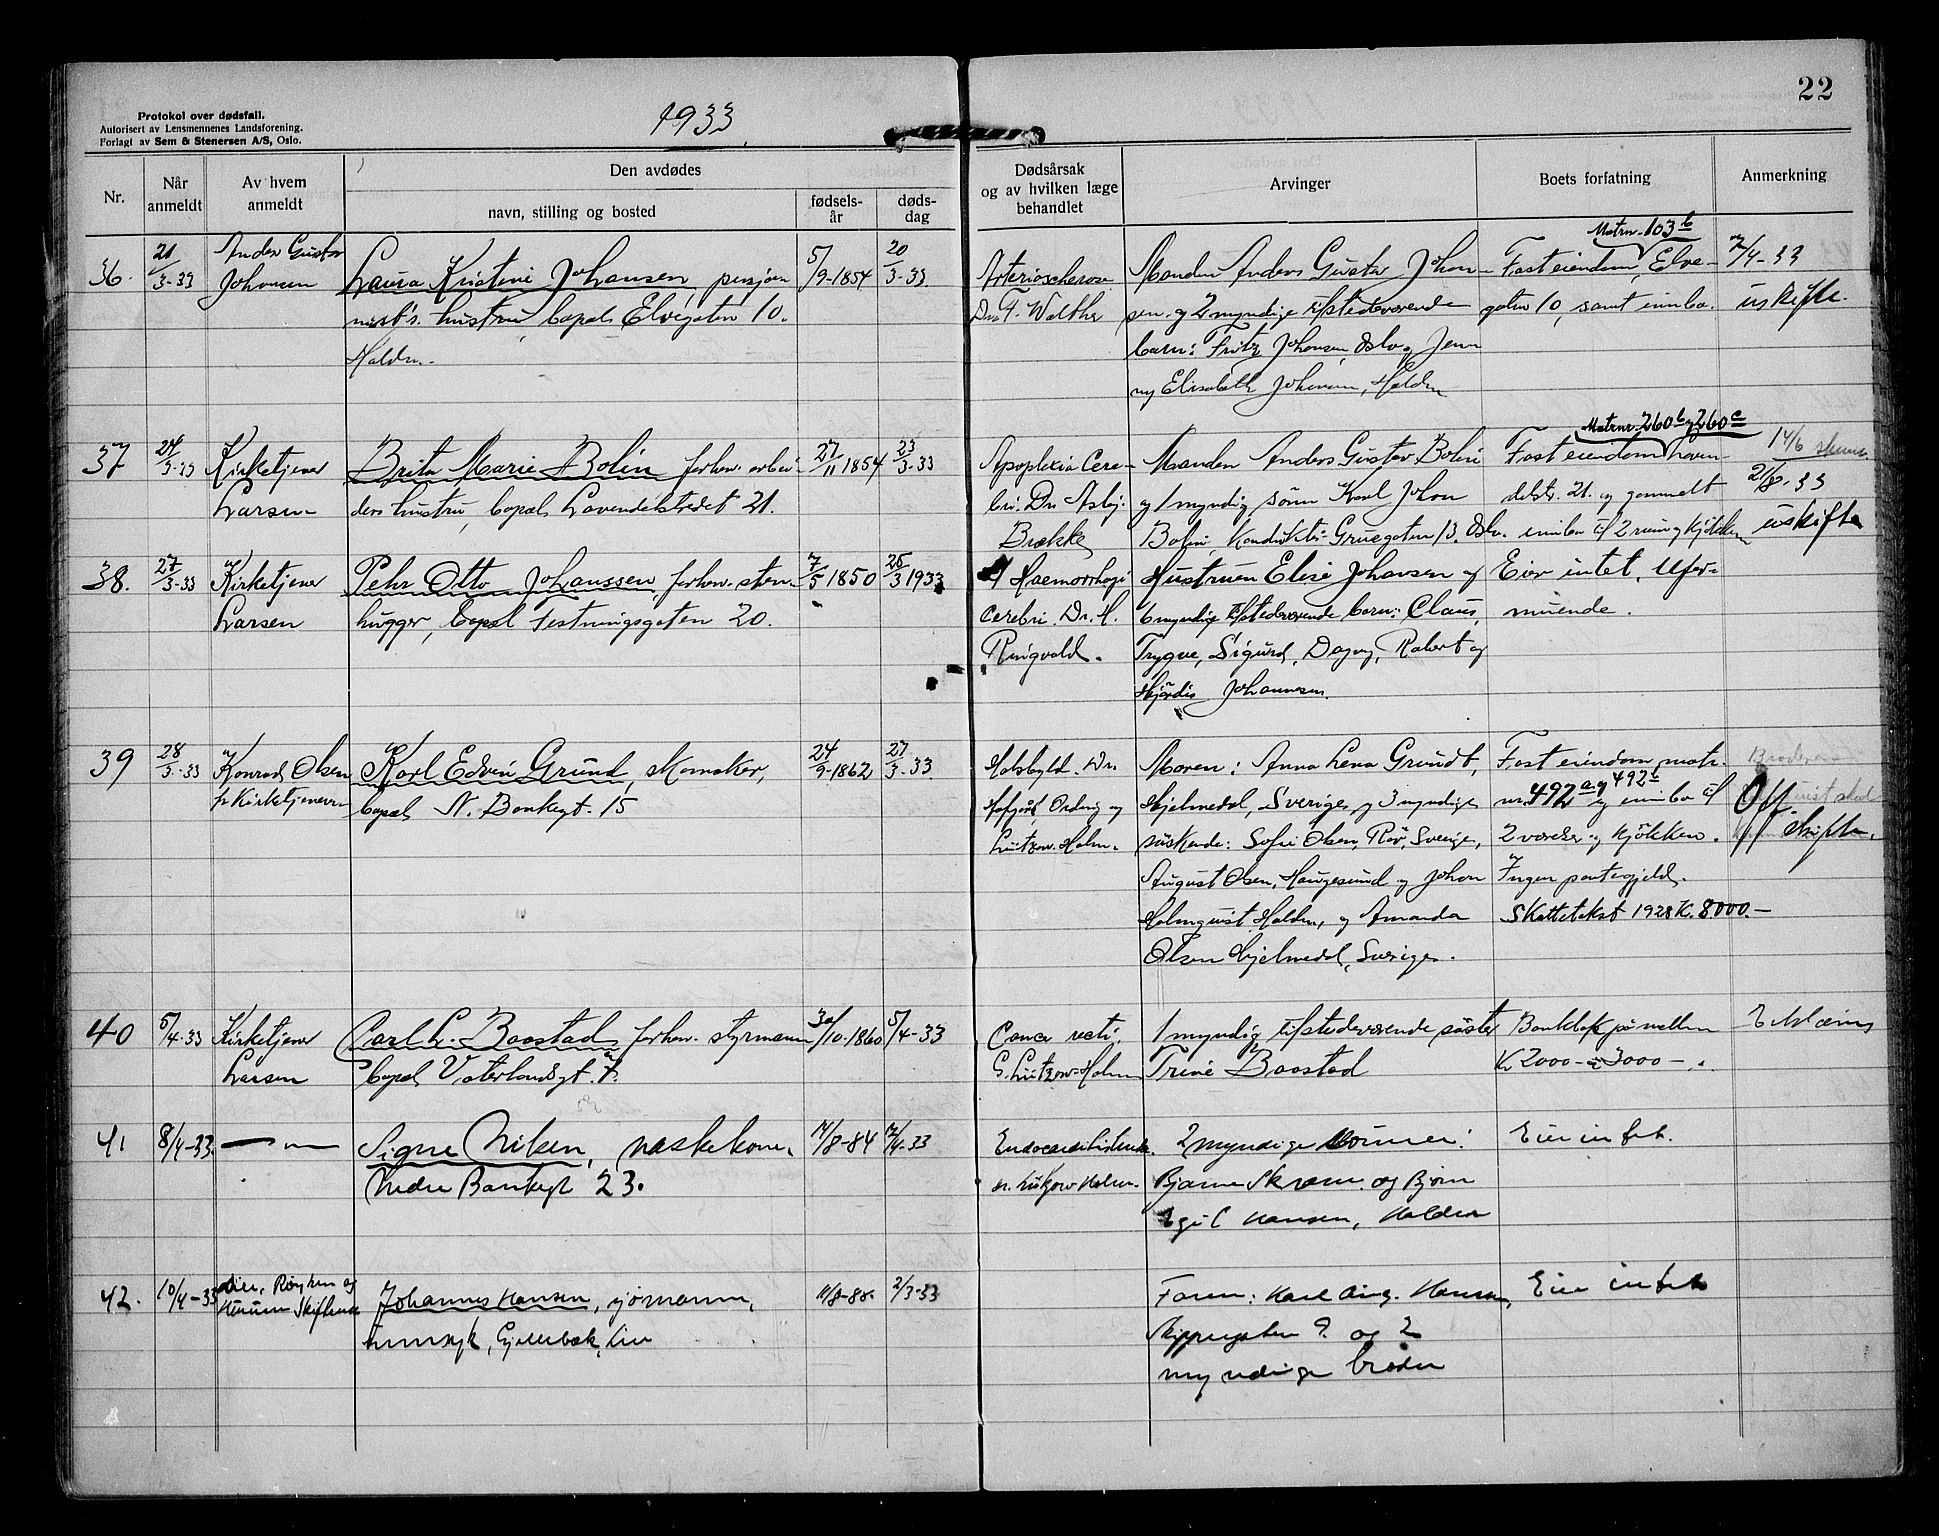 22
Protokol over dødsfall.
Autorisert av Lensmennenes Landsforening.
Forlagt av Sem & Stenersen A/S, Oslo.
1933
Nr.
Når anmeldt
Av hvem anmeldt
Den avdødes
navn, stilling og bosted
fødsels-år
døds-dag
Dødsårsak og av hvilken læge behandlet
Arvinger
Boets forfatning
Anmerkning
36. 21/3-33
Anders Gustav
Johansen
Laura Kristine Johansen, pensjo-
nist's hustru,
Elvegaten 10.
Halden.
5/9-1854 20/3-33
Dr. F. Walther
Manden Anders Gustav Johan-
sen og 2 myndige tilstedeværende
barn: Fritz Johansen, Oslo og Jen-
ny Elisabeth Johansen, Halden
Matrnr. 103 b
Fast eiendom, Elve-
gaten 10, samt innbo.
7/4-33
uskifte.
37 24/3-33
Kirketjener
Larsen
Brita Marie Bolin forhenv. arbei-
ders hustru, Lavendelstredet 21.
27/11 1854 23/3-33
Apoplexia Cere-
bri. Dr. Asbj.
Brække
Manden Anders Gustav Bolin
og 1 myndig sønn Karl Johan
Bolin, Gruegaten 13. Oslo.
Matrnr. 260 b og 260 c
Fast eiendom Laven-
delstr. 21. og gammelt
innbo til 2 rum og kjøkken
14/6
33
uskifte
38. 27/3-33
Kirketjener
Larsen
Pehr Otto Johanssen forhenv. sten-
hugger, Festningsgaten 20.
7/5 1850 25/3 1933
Haemorrhagi
cerebri. Dr. H.
Ringvold.
Hustruen Elise Johansen og
6 myndige tilstedeværende barn: Claus,
Trygve, Sigurd, Dagny, Robert og
Hjørdis Johannesen.
Eier intet. Ufor-
muende.
39 28/3-33
Konrad Olsen
p. Kirketjeneren
Karl Edvin Grund, skomaker,
N. Bankegt. 15
24/9-1862 27/3-33
Halsbyld. Dr.
Lützow-Holm.
Moren: Anna Lena Grundt,
Hjelmedal, Sverige, og 3 myndige
søskende: Sofie Olsen, Sverige,
August Olsen, Haugesund og Johan
Holmquist Halden, og Amanda
Olsen Hjelmedal, Sverige.
Fast eiendom matr.
nr. 492 a og 492 b og innbo til
2 værelser og kjøkken.
Ingen pantegjeld.
Skattetakst 1928 K. 8000.-
Off. skifte.
40 5/4-33
Kirketjener
Larsen
Carl L. Baastad forhenv. styrmann
Vaterlandsgt. 7.
30/10-1860 5/4-33
Cancer recti.
G. Lützow-Holm
1 myndig tilstedeværende søster
Trine Baastad
Bankbok på mellem
Kr 2000- og 3000-.
41 8/4-33. — " —
Signe Nilsen, vaskekone,
Nedre Bankegt 23.
14/8-84 7/4-33
Lützow Holm.
2 myndige sønner:
Bjarne Skram og Bjørn
Egil Hansen, Halden
Eier intet.
42. 10/4-33
Lier, Røyken og
Hurum Skifterett
Johannes Hansen, sjømann,
Gjellebæk, Lier
11/8-88. 2/3-33
Faren: Karl Aug. Hansen,
Skippergaten 9. og 2
myndige brødre
Eier intet